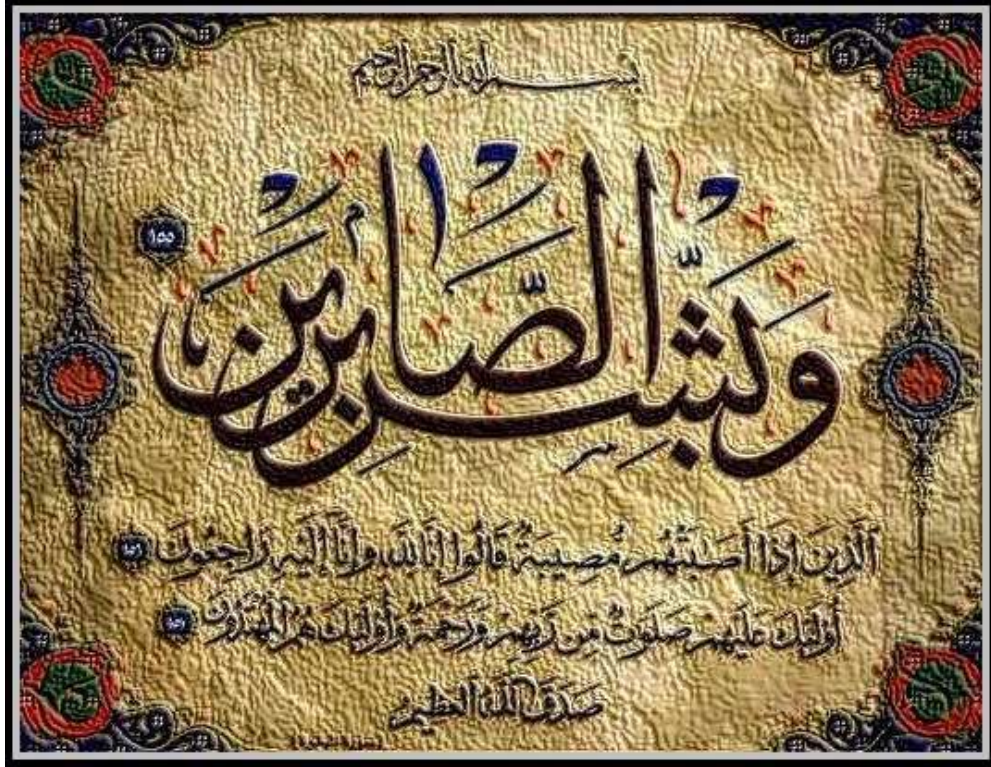 بسم الله الرحمن الرحيم
وَبَشِّرِ الصَّابِرِينَ ١٥٥
الَّذِينَ إِذَا أَصَٰبَتْهُم مُّصِيبَةٌ قَالُوا إِنَّا لِلَّهِ وَإِنَّا إِلَيْهِ رَاجِعُونَ ١٥٦
أُولَٰئِكَ عَلَيْهِمْ صَلَوَٰتٌ مِّن رَّبِّهِمْ وَرَحْمَةٌ وَأُولَٰئِكَ هُمُ الْمُهْتَدُونَ ١٥٧
صدق الله العظيم